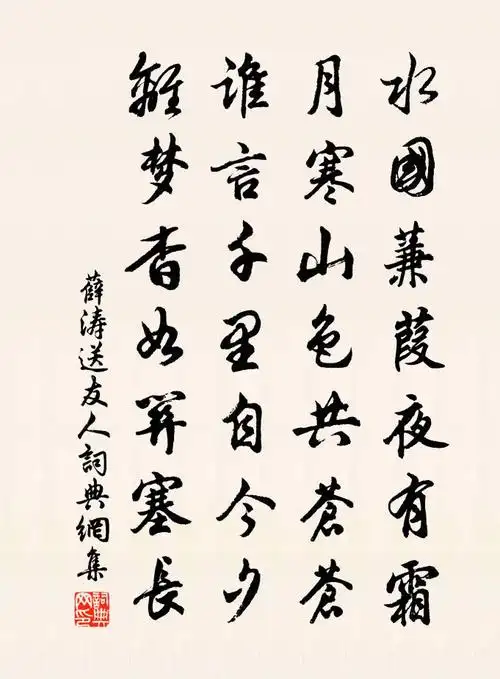 水國蒹葭夜有霜
月寒山色共蒼蒼
誰言千里自今夕
離梦杳如關塞長
薛濤送友人詞典網集
詞典网印